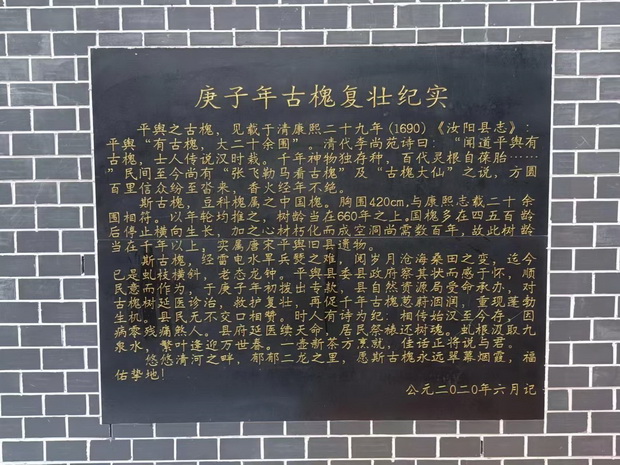 庚子年古槐复壮纪实
平舆之古槐，见载于清康熙二十九年(1690)《汝阳县志》：
平舆“有古槐，大二十余围”。清代李尚苑诗曰：“闻道平舆有
古槐，士人传说汉时栽。千年神物独存种，百代灵根自葆胎……
”民间至今尚有“张飞勒马看古槐”及“古槐大仙”之说，方圆
百里信众纷至沓来，香火经年不绝。
斯古槐，豆科槐属之中国槐。胸围420cm,与康熙志载二十余
围相符。以年轮均推之，树龄当在660年之上,国槐多在四五百龄
后停止横向生长，加之心材朽化而成空洞尚需数百年，故此树龄
当在千年以上，实属唐宋平舆旧县遗物。
斯古槐，经雷电水旱兵燹之难，阅岁月沧海桑田之变，迄今
已是虬枝横斜，老态龙钟。平舆县委县政府察其状而感于怀，顺
民意而作为，于庚子年初拨出专款，县自然资源局受命承办，对
古槐树延医诊治，救护复壮，再促千年古槐葱蔚洇润，重现蓬勃
生机，县民无不交口相赞。时人有诗为纪：相传始汉至今存，因
病零残痛煞人。县府延医续天命，居民祭祷还树魂。虬根汲取九
泉水，繁叶逢迎万世春。一壶新茶方烹就，佳话正将说与君。
悠悠清河之畔，郁郁二龙之里，愿斯古槐永远翠幕烟霞，福
佑挚地!
公元二〇二〇年六月记